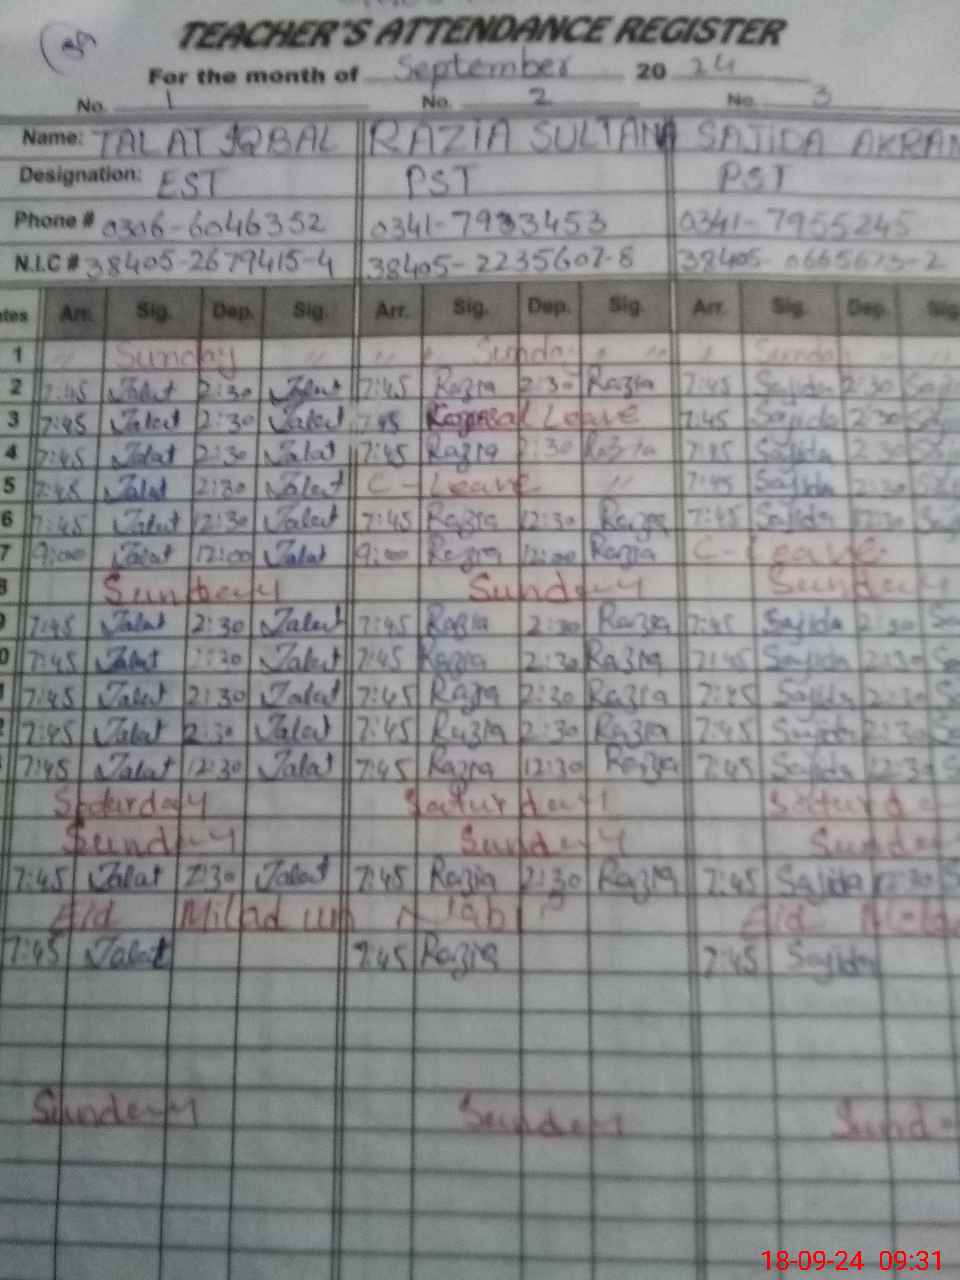 TEACHER'S ATTENDANCE REGISTER
For the month of September 2024
No. 1 No. 2 No. 3
Name: TALAT IQBAL RAZIA SULTANA SAJIDA AKRAM
Designation: EST PST PST
Phone # 0306-6046352 0341-7933453 0341-7955245
N.I.C # 38405-2679415-4 38405-2235607-8 38405-0665675-2
ates Arr. Sig. Dep. Sig. Arr. Sig. Dep. Sig. Arr. Sig. Dep. Sig
1 " Sunday " " Sunday " " Sunday
2 7:45 Talat 2:30 Talat 7:45 Razia 2:30 Razia 7:45 Sajida 2:30
3 7:45 Talat 2:30 Talat 7:45 Leave 7:45 Sajida 2:30
4 7:45 Talat 2:30 Talat 7:45 Razia 2:30 Razia 7:45 Sajida 2:30
5 7:45 Talat 2:30 Talat C-Leave " 7:45 Sajida 2:30
6 7:45 Talat 12:30 Talat 7:45 Razia 12:30 Razia 7:45 Sajida 12:30
7 9:00 Talat 12:00 Talat 9:00 Razia 12:00 Razia C-Leave
Sunday Sunday Sunday
7:45 Talat 2:30 Talat 7:45 Razia 2:30 Razia 7:45 Sajida 2:30
0 7:45 Talat 2:30 Talat 7:45 Razia 2:30 Razia 7:45 Sajida 2:30
7:45 Talat 2:30 Talat 7:45 Razia 2:30 Razia 7:45 Sajida 2:30
7:45 Talat 2:30 Talat 7:45 Razia 2:30 Razia 7:45 Sajida 2:30
7:45 Talat 12:30 Talat 7:45 Razia 12:30 Razia 7:45 Sajida 12:30
Saturday Saturday Saturda
Sunday Sunday Sunda
7:45 Talat 2:30 Talat 7:45 Razia 2:30 Razia 7:45 Sajida 2:30
Eid Milad un Nabi Eid Mila
7:45 Talat 7:45 Razia 7:45 Sajida
Sunday Sunday Sunda
18-09-24 09:31